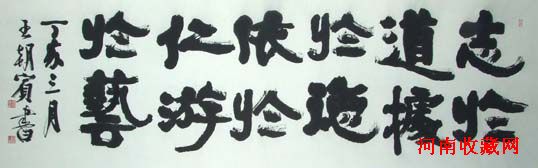 志於
道據
於德
依於
仁游
於藝
丁亥三月
王朝賓書
河南收藏网